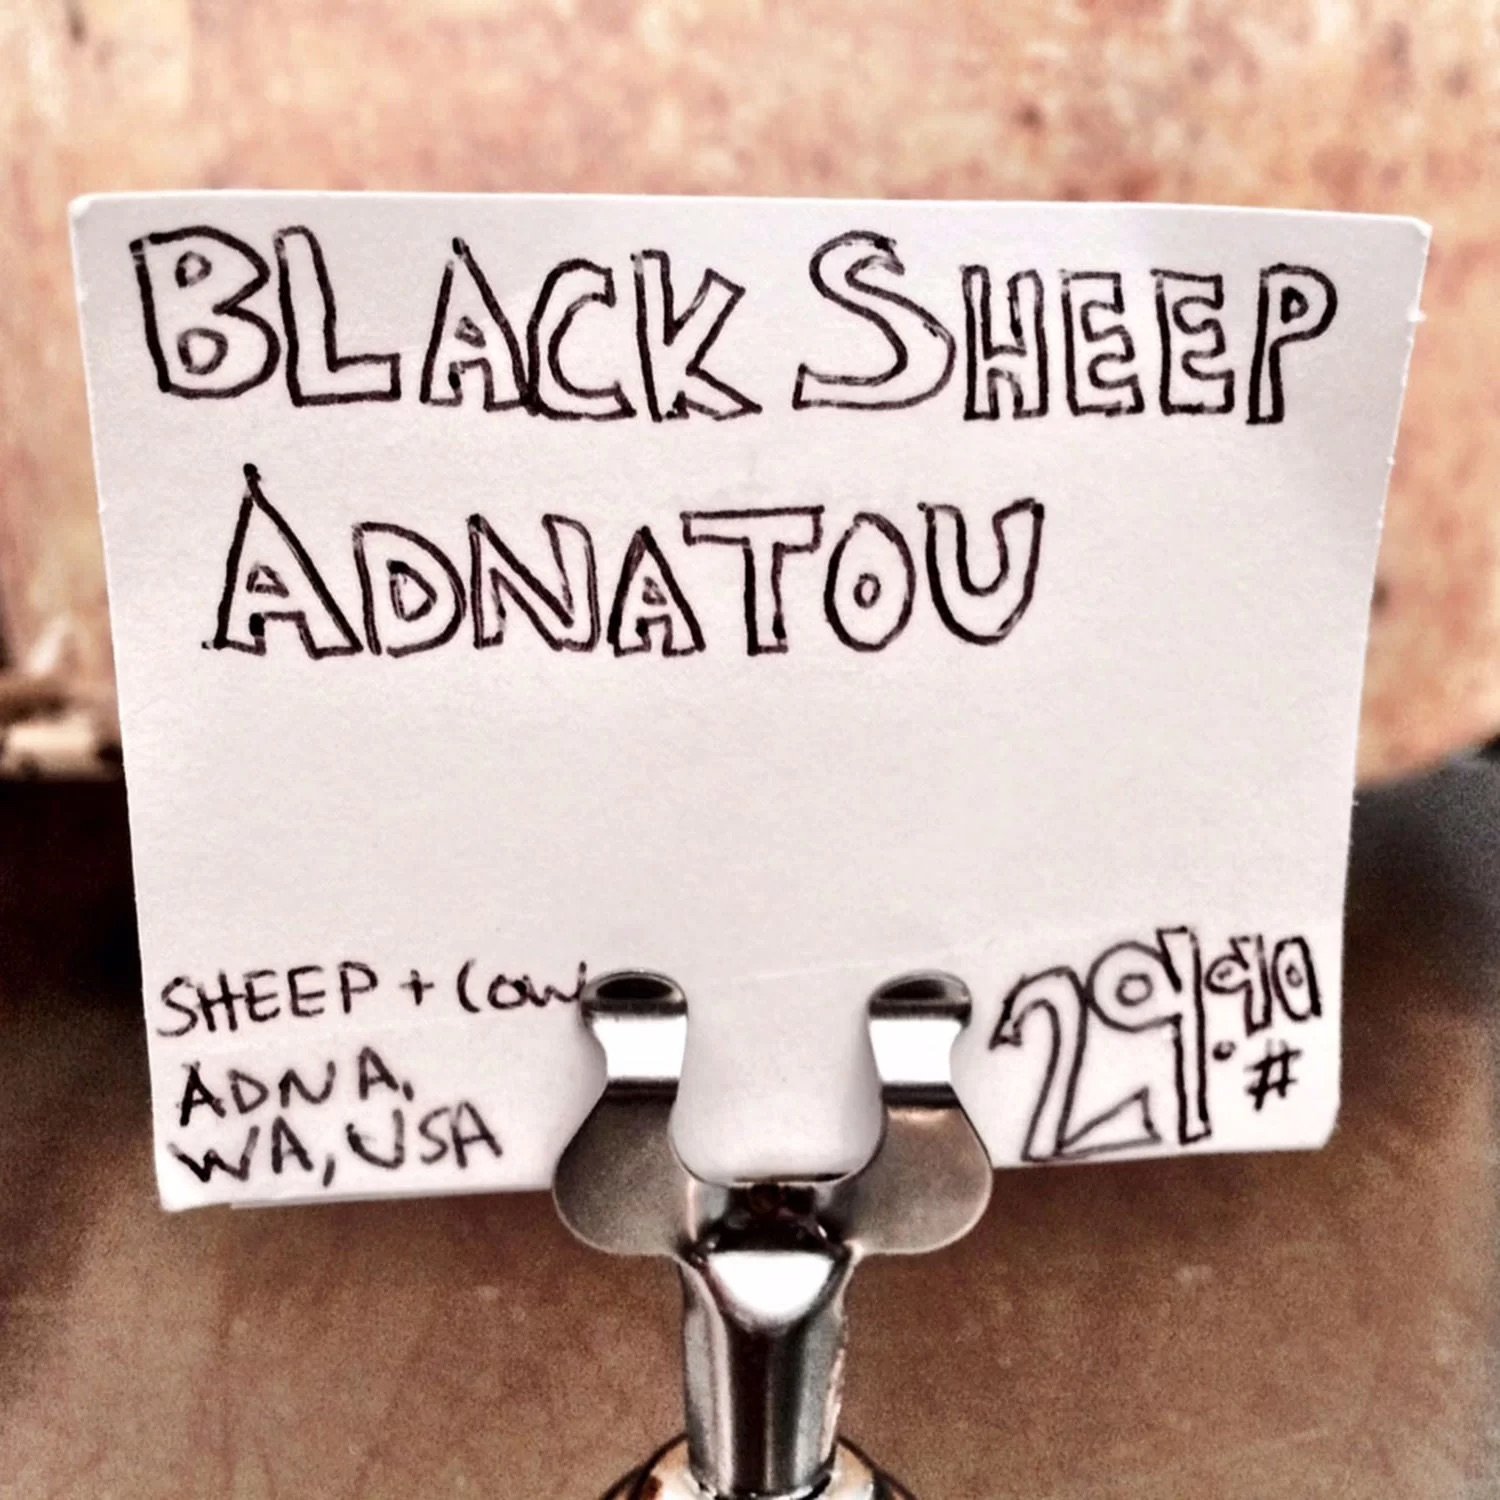 BLACK SHEEP
ADNATOU
SHEEP + COW
ADNA,
WA, USA
29.90
#